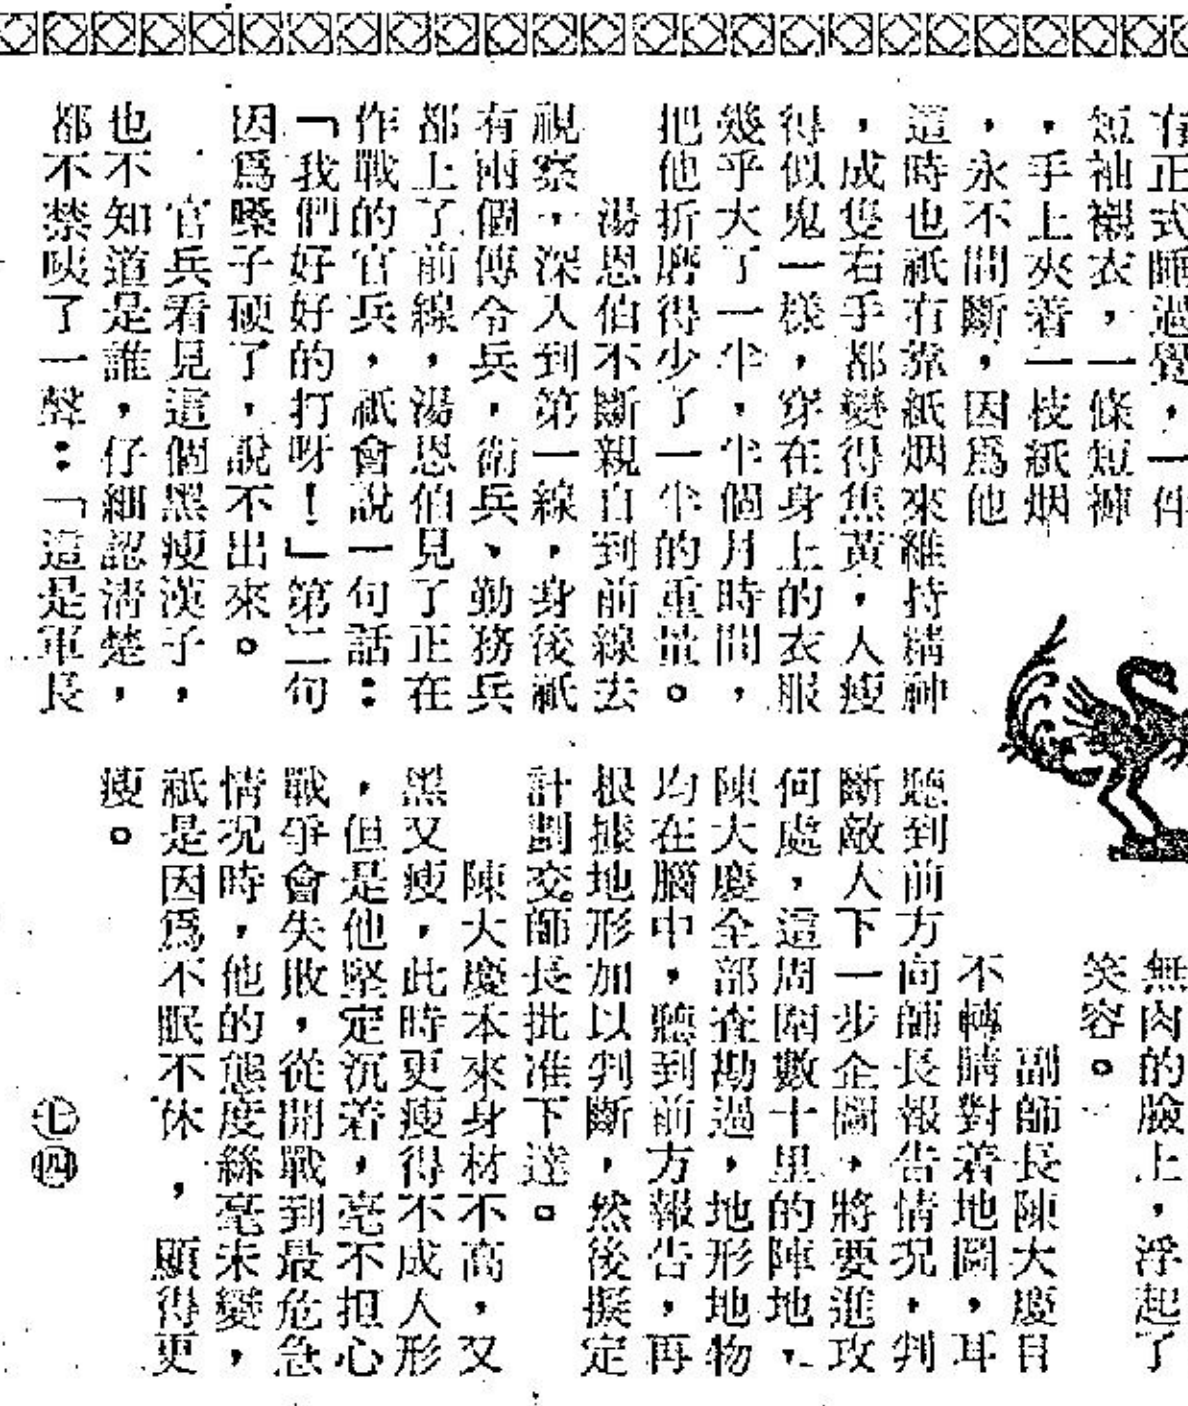 有正式睡過覺，一件
短袖襯衣，一條短褲
，手上夾着一枝紙烟
，永不間斷，因爲他
這時也祇有靠紙烟來維持精神
，成隻右手都變得焦黃，人瘦
得似鬼一樣，穿在身上的衣服
幾乎大了一半，半個月時間，
把他折磨得少了一半的重量。
湯恩伯不斷親自到前線去
視察，深入到第一線，身後祇
有兩個傳令兵，衛兵、勤務兵
都上了前線，湯恩伯見了正在
作戰的官兵，祇會說一句話：
「我們好好的打呀！」第二句
因爲嗓子硬了，說不出來。
官兵看見這個黑瘦漢子，
也不知道是誰，仔細認清楚，
都不禁咦了一聲：「這是軍長
無肉的臉上，浮起了
笑容。
副師長陳大慶目
不轉睛對着地圖，耳
聽到前方向師長報告情況，判
斷敵人下一步企圖，將要進攻
何處，這周圍數十里的陣地，
陳大慶全部查勘過，地形地物
均在腦中，聽到前方報告，再
根據地形加以判斷，然後擬定
計劃交師長批准下達。
陳大慶本來身材不高，又
黑又瘦，此時更瘦得不成人形
，但是他堅定沉着，毫不担心
戰爭會失敗，從開戰到最危急
情況時，他的態度絲毫未變，
祇是因爲不眠不休，顯得更
瘦。
七四